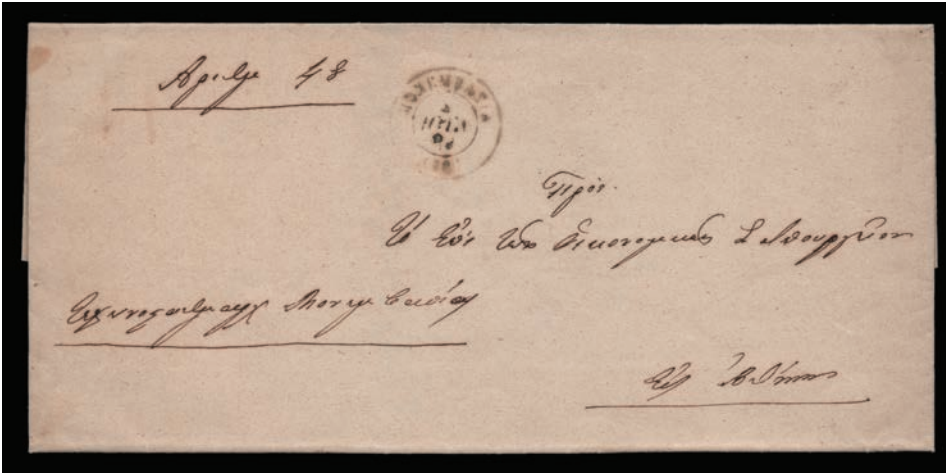 Αριθμ 48
ΜΟΝΕΜΒΑΣΙΑ
Πρὸς
Τὸ Ἐπὶ τῶν Οἰκονομικῶν Σ Ὑπουργεῖον
Μονεμβασίας
Εἰς Ἀθήνας